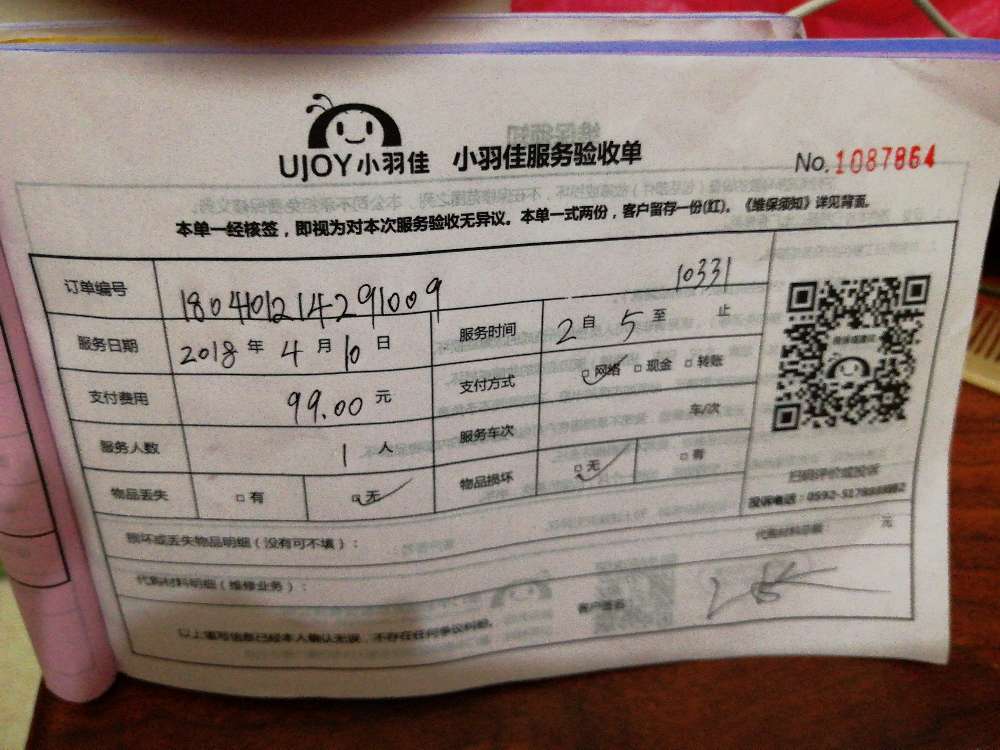 UJOY小羽佳 小羽佳服务验收单 No.1087864
本单一经核签，即视为对本次服务验收无异议。本单一式两份，客户留存一份(红)。《维保须知》详见背面。
订单编号 1804101214291009 10331
服务日期 2018 年 4 月 10 日 服务时间 2 自 5 至 止
支付费用 99.00 元 支付方式 □网络 □现金 □转账
服务人数 1 人 服务车次 车/次
物品丢失 □有 □无 物品损坏 □无 □有
扫码评价或投诉
投诉电话：0592-
损坏或丢失物品明细（没有可不填）：
代购材料总额： 元
代购材料明细（维修业务）：
客户签名
以上填写信息已经本人确认无误，不存在任何争议纠纷。